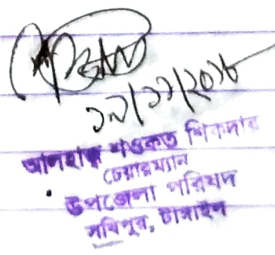 ১৯/১১/২০১৮
আলহাজ্ব শওকত শিকদার
চেয়ারম্যান
উপজেলা পরিষদ
সখিপুর, টাঙ্গাইল